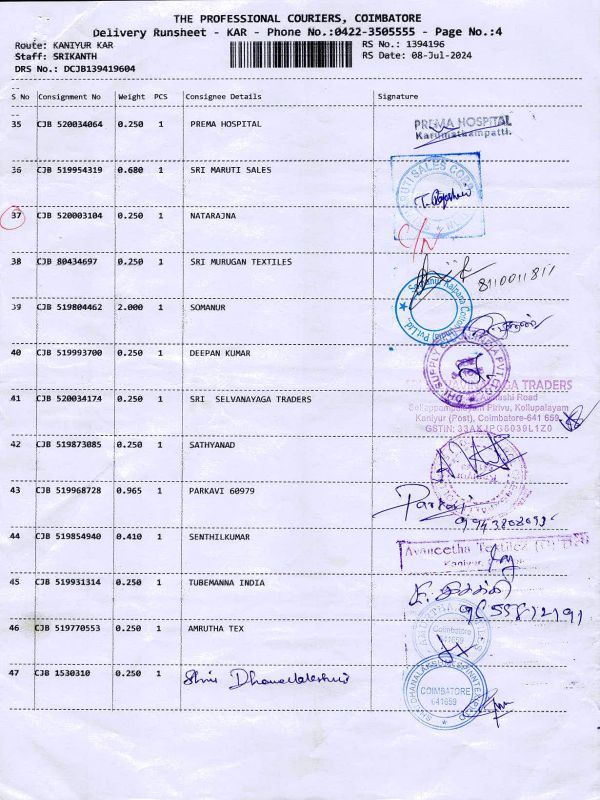 THE PROFESSIONAL COURIERS, COIMBATORE
Delivery Runsheet - KAR - Phone No.:0422-3505555 - Page No.:4
Route: KANIYUR KAR RS No.: 1394196
Staff: SRIKANTH RS Date: 08-Jul-2024
DRS No.: DCJB139419604
S No Consignment No Weight PCS Consignee Details Signature
35 CJB 520034064 0.250 1 PREMA HOSPITAL PREMA HOSPITAL
Karumathampatti.
36 CJB 519954319 0.680 1 SRI MARUTI SALES
37 CJB 520003104 0.250 1 NATARAJNA C/N
38 CJB 80434697 0.250 1 SRI MURUGAN TEXTILES 8110011811
39 CJB 519804462 2.000 1 SOMANUR
40 CJB 519993700 0.250 1 DEEPAN KUMAR
41 CJB 520034174 0.250 1 SRI SELVANAYAGA TRADERS
TRADERS
Road
Pirivu, Kollupalayam
Kaniyur (Post), Coimbatore-641 659
GSTIN: 33AKJPG6039L1Z0
42 CJB 519873085 0.250 1 SATHYANAD
43 CJB 519968728 0.965 1 PARKAVI 60979 Parkavi
44 CJB 519854940 0.410 1 SENTHILKUMAR
Avaneetha Textiles (P) LTD
Kaniyur,
45 CJB 519931314 0.250 1 TUBEMANNA INDIA
46 CJB 519770553 0.250 1 AMRUTHA TEX
Coimbatore
641659
47 CJB 1530310 0.250 1 Shri Dhanalakshmi
COIMBATORE
641659